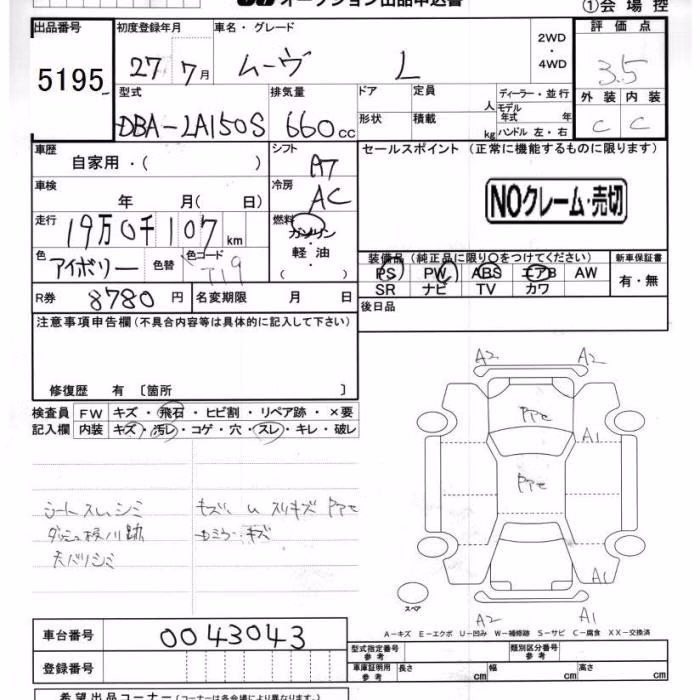 オークション出品申込書
①会場控
出品番号 初度登録年月 車名・グレード 2WD・4WD 評価点
5195 27年7月 ムーヴ L 3.5
型式 排気量 ドア 定員 人 ディーラー・並行 外装 内装
DBA-LA150S 660cc 形状 積載 kg モデル年式 年 ハンドル 左・右 C C
車歴 シフト セールスポイント (正常に機能するものに限ります)
自家用・( ) AT
車検 冷房
年 月( 日) AC NOクレーム・売切
走行 燃料
19万0千107km ガソリン
軽油
( )
色 色替 色コード 装備品(純正品に限り○をつけてください) 新車保証書
アイボリー T19 PS PW ABS エアB AW 有・無
SR ナビ TV カワ
R券 8780円 名変期限 月 日 後日品
注意事項申告欄(不具合内容等は具体的に記入して下さい)
修復歴 有 〔箇所 〕
検査員 FW キズ・飛石・ヒビ割・リペア跡・×要
記入欄 内装 キズ・汚レ・コゲ・穴・スレ・キレ・破レ
A2 A2
A1
シートスレ、シミ キズ、
天バリシミ キズ
A1
スペア
A2 A1
A−キズ E−エクボ U−凹み W−補修跡 S−サビ C−腐食 XX−交換済
車台番号 0043043
登録番号
型式指定番号 参考 類別区分番号 参考
車庫証明用 参考 長さ cm 幅 cm 高さ cm
希望出品コーナー(コーナーは各会場により異なります。)